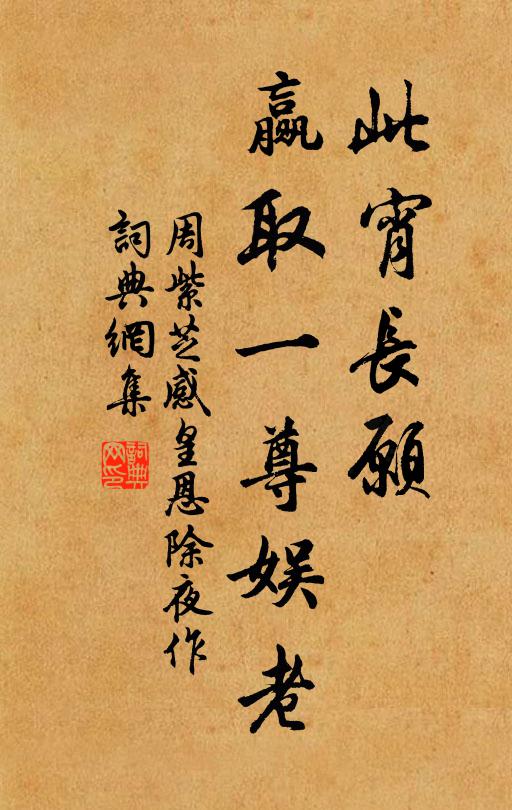 此宵長願
贏取一尊娱老
周紫芝感皇恩除夜作
詞典網集
詞典
网印